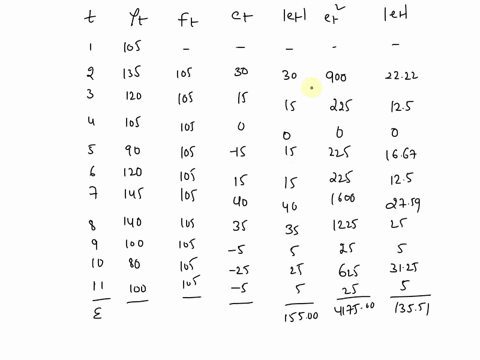 t Yt ft et |et| et² |et|
1 105 - - - - -
2 135 105 30 30 900 22.22
3 120 105 15 15 225 12.5
4 105 105 0 0 0 0
5 90 105 -15 15 225 16.67
6 120 105 15 15 225 12.5
7 145 105 40 40 1600 27.59
8 140 105 35 35 1225 25
9 100 105 -5 5 25 5
10 80 105 -25 25 625 31.25
11 100 105 -5 5 25 5
Σ — — — 155.00 4175.00 135.51